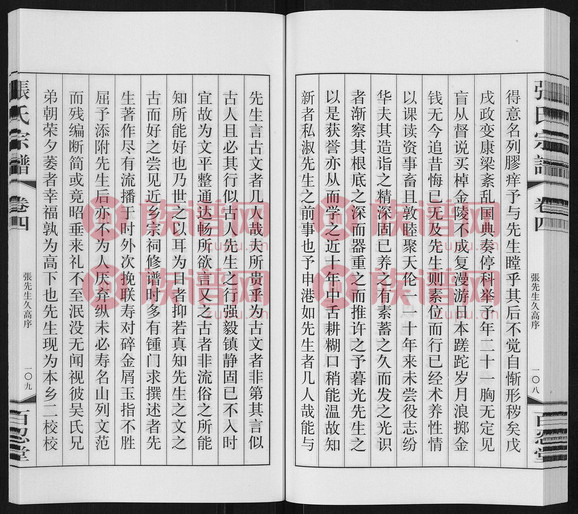 張氏宗譜
卷四
張先生久高序
一〇八
百忍堂
得意名列膠庠予与先生瞠乎其后不觉自惭形秽矣戊
戌政变康梁紊乱国典奏停科举予年二十一胸无定见
盲从督说买棹金陵不成复漫游日本蹉跎岁月浪掷金
钱无今追昔悔已无及先生则素位而行已经术养性情
以课读资事畜且敦睦聚天伦一二十年来未尝役志纷
华夫其造诣之精深固已养之有素蓄之久而发之光识
者渐察其根底之深而器重之而推许之予暮光先生之
以是获誉亦从而学之近十年中舌耕糊口稍能温故知
新者私淑先生之前事也予申港如先生者几人哉能与
先生言古文者几人哉夫所贵乎为古文者非第其言似
古人且必其行似古人先生之行强毅镇静固已不入时
宜故为文平整通达畅所欲言又之古者非流俗之所能
知所能好也乃世之以耳为目者抑若真知先生之文之
古而好之尝见近乡宗祠修谱时多有锺门求撰述者先
生著作尽有流播于时外次挽联寿对碎金屑玉指不胜
屈予忝附先生后亦不为人厌弃纵未必寿名山列文范
而残编断简或竟昭垂来礼不至泯没无闻视彼吴氏兄
弟朝荣夕萎者幸福孰为高下也先生现为本乡二校校
張氏宗譜
卷四
張先生久高序
一〇九
百忍堂
族谱网